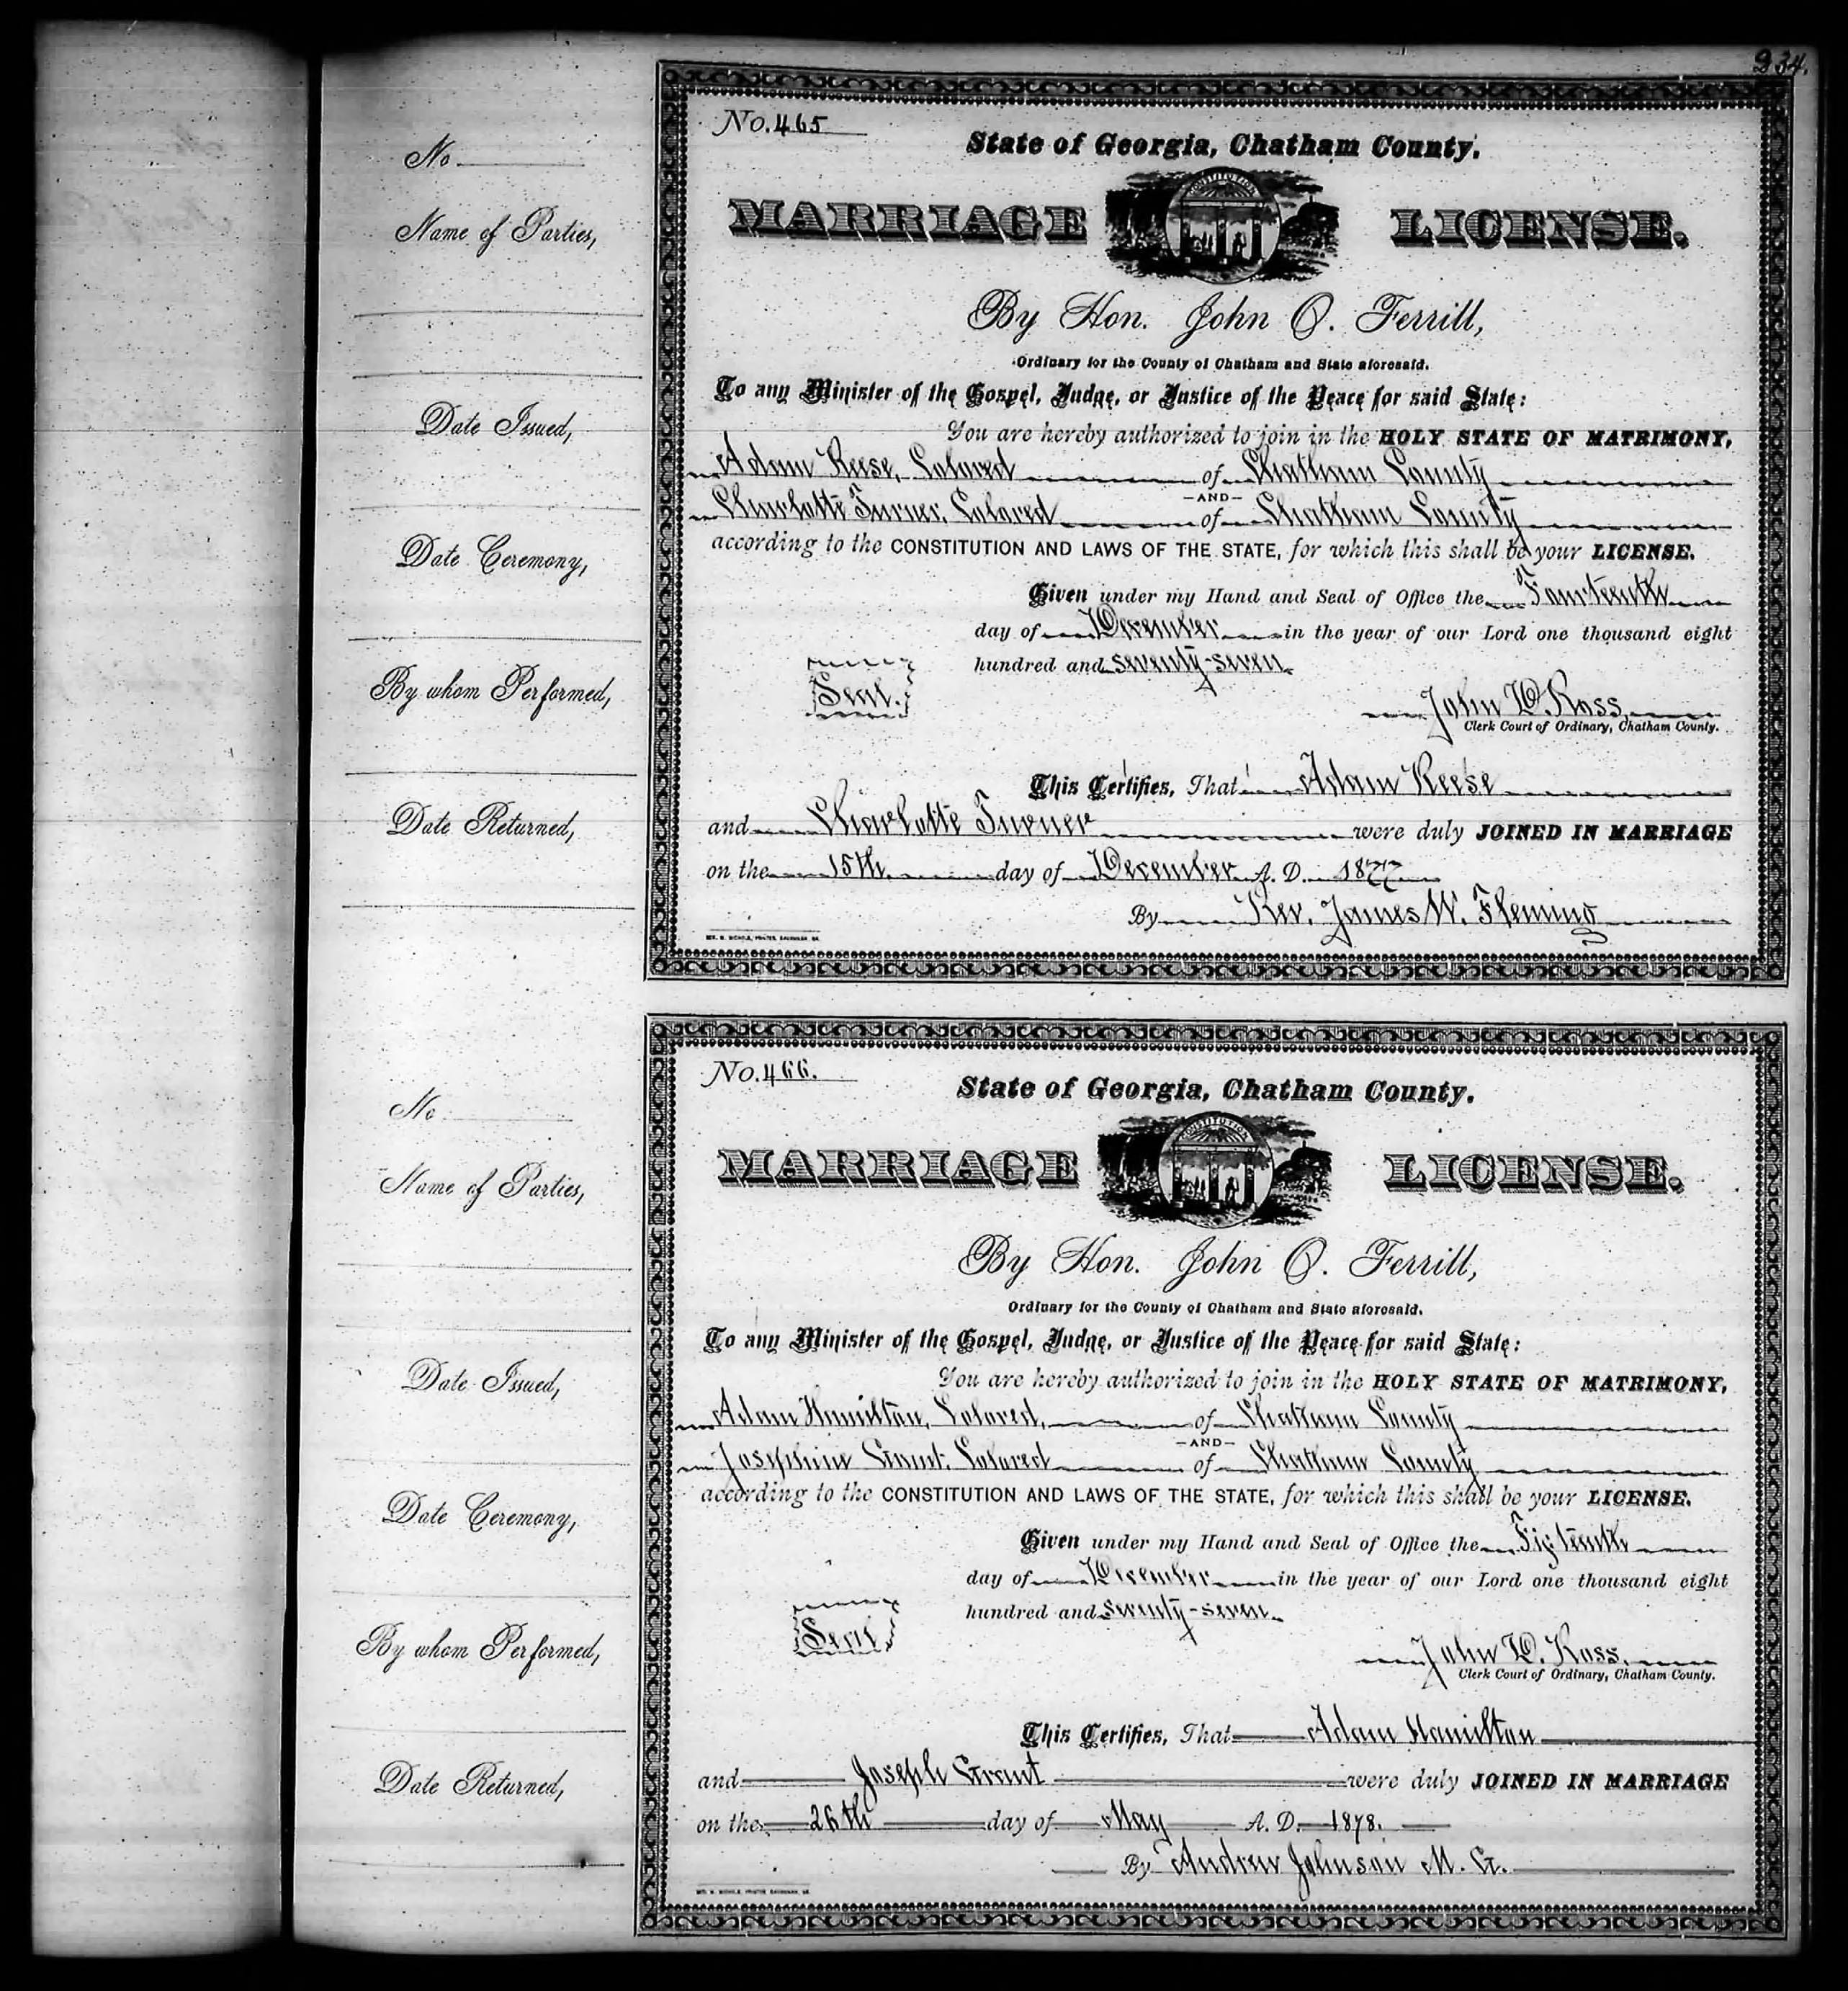 234.
No.
Name of Parties,
Date Issued,
Date Ceremony,
By whom Performed,
Date Returned,
No. 465
State of Georgia, Chatham County.
MARRIAGE LICENSE.
CONSTITUTION
By Hon. John O. Ferrill,
Ordinary for the County of Chatham and State aforesaid.
To any Minister of the Gospel, Judge, or Justice of the Peace for said State:
You are hereby authorized to join in the HOLY STATE OF MATRIMONY,
Adam Reese, Colored of Chatham County
—AND—
Charlotte Turner, Colored of Chatham County
according to the CONSTITUTION AND LAWS OF THE STATE, for which this shall be your LICENSE.
Given under my Hand and Seal of Office the Fourteenth
day of December in the year of our Lord one thousand eight
hundred and seventy-seven
Seal.
John D. Ross,
Clerk Court of Ordinary, Chatham County.
This Certifies, That Adam Reese
and Charlotte Turner were duly JOINED IN MARRIAGE
on the 15th day of December A. D. 1877
By Rev. James W. Fleming
GEO. N. NICHOLS, PRINTER, SAVANNAH, GA.
No.
Name of Parties,
Date Issued,
Date Ceremony,
By whom Performed,
Date Returned,
No. 466.
State of Georgia, Chatham County.
MARRIAGE LICENSE.
CONSTITUTION
By Hon. John O. Ferrill,
Ordinary for the County of Chatham and State aforesaid.
To any Minister of the Gospel, Judge, or Justice of the Peace for said State:
You are hereby authorized to join in the HOLY STATE OF MATRIMONY,
Adam Hamilton, Colored, of Chatham County
—AND—
Josephine Grant, Colored of Chatham County
according to the CONSTITUTION AND LAWS OF THE STATE, for which this shall be your LICENSE.
Given under my Hand and Seal of Office the Fifteenth
day of December in the year of our Lord one thousand eight
hundred and seventy-seven
Seal.
John D. Ross,
Clerk Court of Ordinary, Chatham County.
This Certifies, That Adam Hamilton
and Joseph Grant were duly JOINED IN MARRIAGE
on the 26th day of May A. D. 1878.
By Andrew Johnson M. G.
GEO. N. NICHOLS, PRINTER, SAVANNAH, GA.